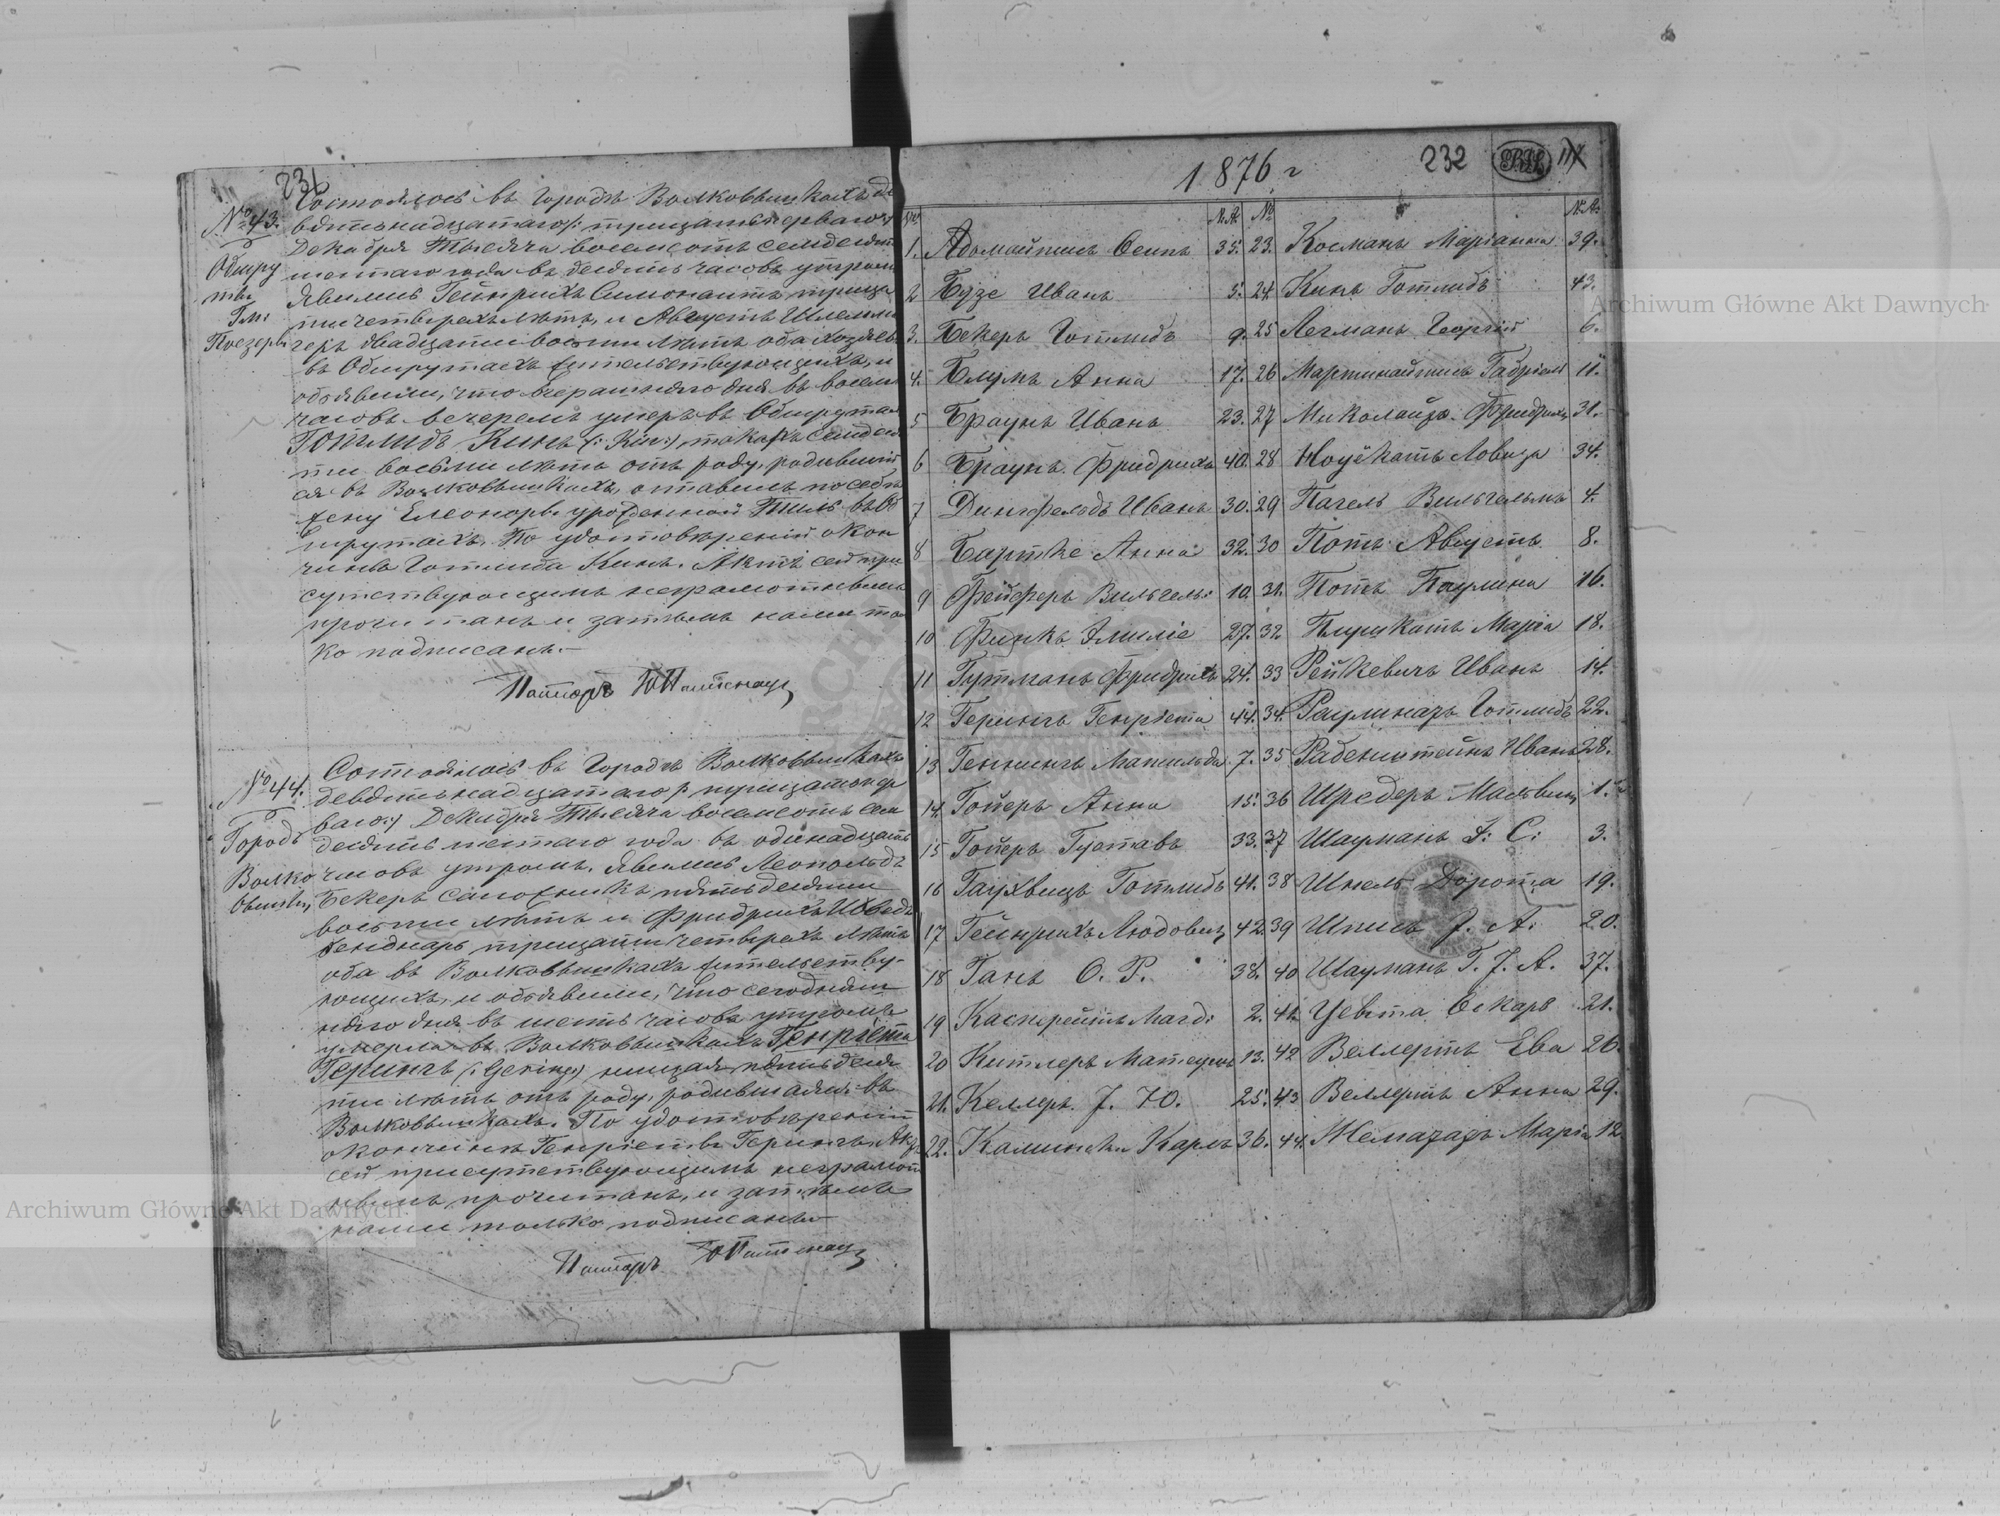 231
№ 43.
Обшру
ты
Гм:
Поезеры
Состоялось въ городѣ Волковышкахъ де
вятьнадцатаго /: тридцать перваго :/
Декабря Тысяча восемсотъ семдесятъ
шестаго года въ десять часовъ утромъ
Явились Гейнрихъ Симонаитъ трица
ти четырехъ лѣтъ, и Августъ Шлемин
геръ двадцати восьми лѣтъ оба хозяева
въ Обшрутахъ жительствующихъ, и
объявили, что вчерашняго дня въ восемь
часовъ вечеромъ умеръ въ Обшрутахъ
Готлидъ Кинъ (: Kin :) тамъ семдеся
ти восьми лѣтъ отъ роду, родившій
ся въ Волковышкахъ, оставилъ по себѣ
жену Елеонору урожденной Тиль въ Об
шрутахъ. По удостовѣреніи о кон
чинѣ Готлиба Кинъ. Актъ сей при
сутствующимъ неграмотнымъ
прочитанъ и затѣмъ нами то
ко подписанъ.—
Пасторъ
№ 44.
Городъ
Волко
вышки,
Состоялось въ городѣ Волковышкахъ
девятьнадцатаго /: тридцать пер
ваго :/ Декабря Тысяча восемсотъ сем
десятъ шестаго года въ одинадцать
часовъ утромъ. Явились Леопольдъ
Бекеръ сапожникъ пятьдесяти
восьми лѣтъ и Фридрихъ Шведъ
тридцати четырехъ лѣтъ
оба въ Волковышкахъ жительству-
ющихъ, и объявили, что сегодняш
няго дня въ шесть часовъ утромъ
умерла въ Волковышкахъ Генріета
Герингъ (: Gering :) нищая пятьдеся
ти лѣтъ отъ роду, родившаяся въ
Волковышкахъ. По удостовѣреніи
о кончинѣ Генріеты Герингъ. Актъ
сей присутствующимъ неграмот
нымъ прочитанъ, и затѣмъ
нами только подписанъ.—
Пасторъ
1876 г
232
№ №А. № №А.
1. Адомайтисъ Осипъ 35. 23. Косманъ Маріанна 39.
2 Бузе Иванъ 5. 24. Кинъ Готлибъ 43.
3. Бекеръ Готлибъ 9. 25 Легманъ Георгій 6.
4. Блумъ Анна 17. 26 Мартинайтисъ Габріель 11.
5 Браунъ Иванъ 23. 27 Миколайзъ Фридрихъ 31.
6 Браунъ Фридрихъ 40. 28 Ноуйкатъ Ловиза 34.
7 Динфельдъ Иванъ 30. 29 Пагель Вильгельмъ 4.
8 Бартке Анна 32. 30 Потъ Августъ 8.
9 Фрейферъ Вильгель: 10. 31. Потъ Паулина 16.
10 Финкъ Эмиліе 27. 32 Пирукатъ Марія 18.
11 Гутманъ Фридрихъ 24. 33 Рейкевичъ Иванъ 14.
12 Герингъ Генріета 44. 34. Раулинатъ Готлибъ 22.
13 Геннингъ Матильда 7. 35 Рабенштейнъ Иванъ 28.
14. Гойеръ Анна 15. 36 Шредеръ Мальвина 1.
15 Гойеръ Густавъ 33. 37 Шауманъ F: C: 3.
16 Гаухвицъ Готлибъ 41. 38 Шнель Дорота 19.
17 Гейнрихъ Людовиг 42. 39 Шписъ J. A. 20.
18 Ганъ О. Р. 38. 40 Шауманъ Г. J. A. 37.
19 Касперейтъ Магд: 2. 41. Цевта Оскаръ 21.
20 Китлеръ Матеушъ 13. 42 Веллертъ Ева 26.
21. Келлеръ J. Ю. 25. 43 Веллертъ Анна 29.
22. Калински Карлъ 36. 44. Жемададъ Марія 12.
Archiwum Główne Akt Dawnych
Archiwum Główne Akt Dawnych